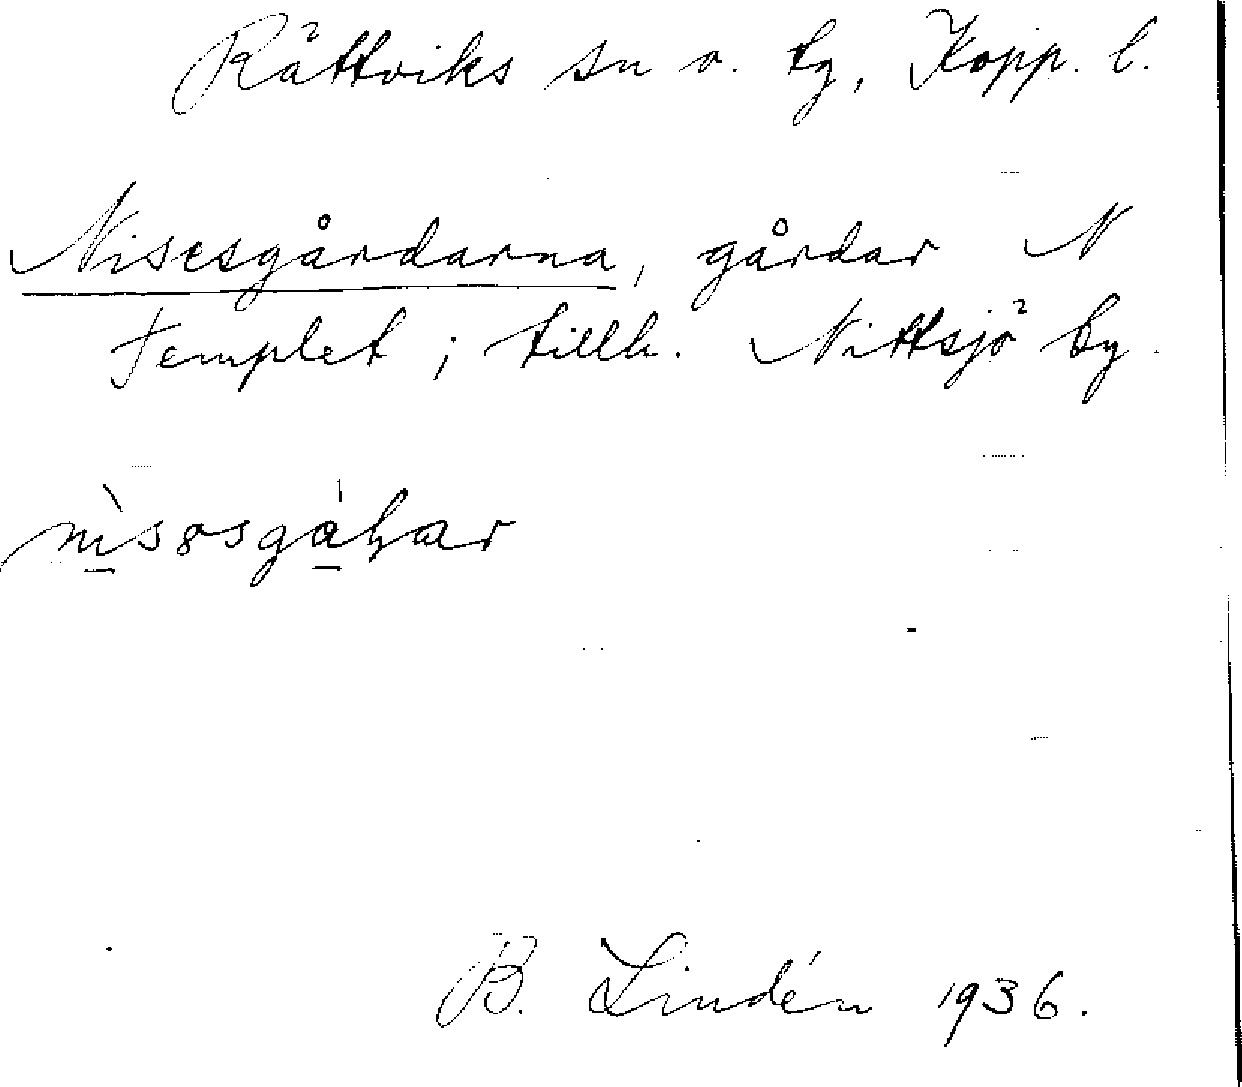 Rättviks sn o. tg, Kopp. l.
Nisesgårdarna, gårdar N
Templet; tillh. Nittsjö by.
B. Lindén 1936.